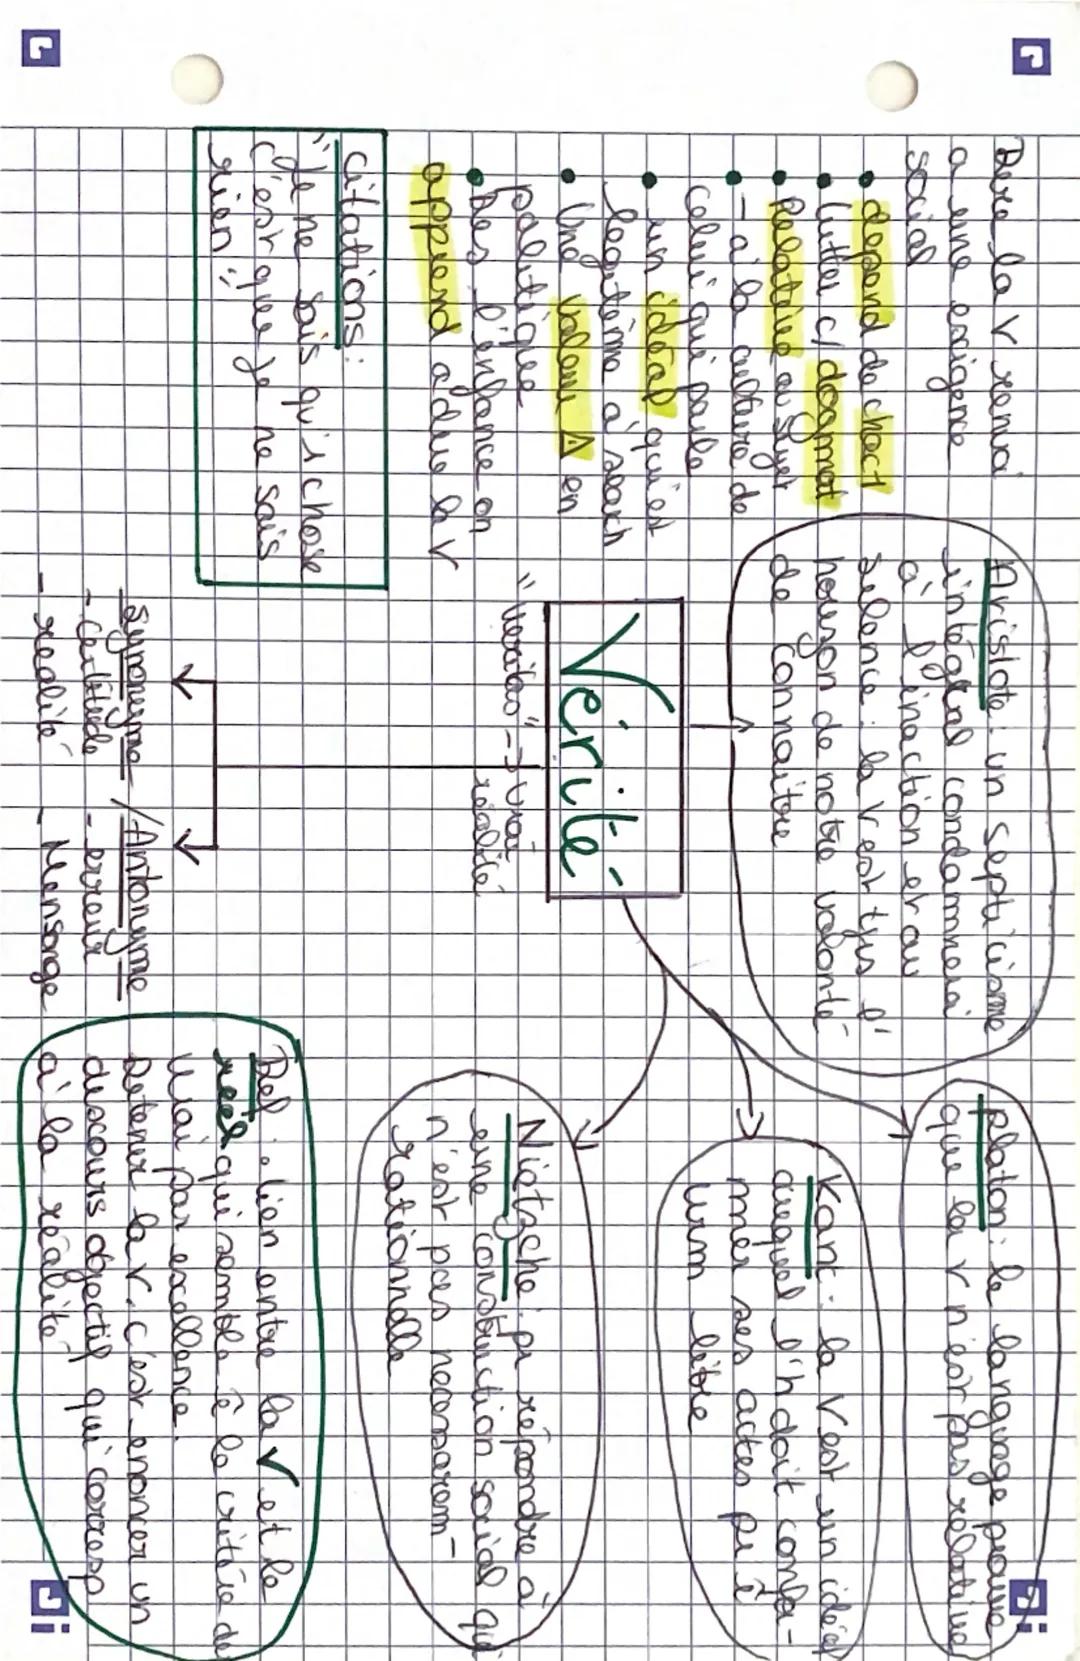 Dire la V renvoi
a une exigence
social
• depend de chact
• lutter c/ dogmat
• Relative au sujet
• - à la culture de
celui qui parle
• un idéal qui est
legitime à search
• Une valeur ∆ en
politique
• Des l'enfance on
apprend a dire la V
citations:
"Je ne sais qu'1 chose
c'est que je ne sais
rien"
Aristote: un septicisme
intégral condamnerai
à l'inaction et au
silence: la V est tjs l'
hourizon de notre volonté
de connaitre
Vérité
"Veritas" -> vrai
réalité
Synonyme / Antonyme
- Certitude - erreur
- realité - Mensonge
platon: le language prouve
que la V n'est pas relative
Kant: la V est un idéal
auquel l'h doit confor-
mer ses actes pr ê
urm libre
Niotsche: pr répondre à
une construction social qui
n'est pas necessarem-
rationnelle
Def: lien entre la V et le
réel qui semble ê le critère du
vrai par excellence.
Detenir la V, c'est enoncer un
discours objectif qui corresp
à la réalité